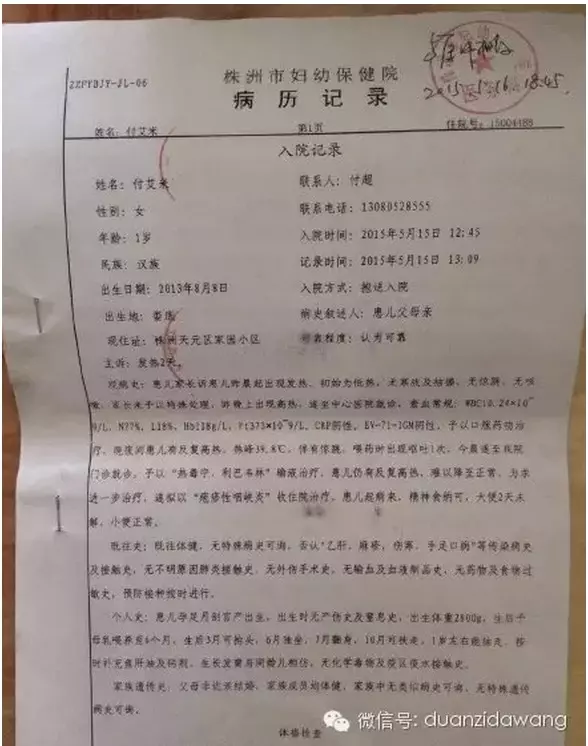 ZZFYBJY-JL-06
株洲市妇幼保健院
2015.5.16. 18:45
病历记录
姓名：付艾米 第1页 住院号：15004488
入院记录
姓名：付艾米 联系人：付超
性别：女 联系电话：13080528555
年龄：1岁 入院时间：2015年5月15日 12:45
民族：汉族 记录时间：2015年5月15日 13:09
出生日期：2013年8月8日 入院方式：抱送入院
出生地：娄底 病史叙述人：患儿父母亲
现住址：株洲天元区家园小区 可靠程度：认为可靠
主诉：发热2天。
现病史：患儿家长诉患儿昨晨起出现发热，初始为低热，无寒战及抽搐，无惊厥，无咳
嗽，家长未予以特殊处理，昨晚上出现高热，遂至中心医院就诊，查血常规：WBC10.24×10^
9/L，N77%，L18%，Hb118g/L，Plt373×10^9/L，CRP阴性，EV-71-IGM阴性，予以口服药物治
疗，晚夜间患儿有反复高热，热峰39.8℃，伴有惊跳，喂药时出现呕吐1次，今晨遂至我院
门诊就诊，予以“热毒宁、利巴韦林”输液治疗，患儿仍有反复高热，难以降至正常，为求
进一步治疗，遂拟以“疱疹性咽峡炎”收住院治疗，患儿起病来，精神食纳可，大便2天未
解，小便正常。
既往史：既往体健，无特殊病史可询，否认“乙肝，麻疹，伤寒，手足口病”等传染病史
及接触史，无不明原因肺炎接触史，无外伤手术史，无输血及血液制品史，无药物及食物过
敏史，预防接种按时进行。
个人史：患儿孕足月剖宫产出生，出生时无产伤史及窒息史，出生体重2800g，生后予
母乳喂养至6个月，生后3月可抬头，6月独坐，7月翻身，10月可扶走，1岁左右能独走，按
时补充鱼肝油及钙剂，生长发育与同龄儿相仿，无化学毒物及疫区疫水接触史。
家族遗传史：父母非近亲结婚，家族成员均体健，家族中无类似病史可询，无特殊遗传
病史可询。
体格检查
微信号：duanzidawang